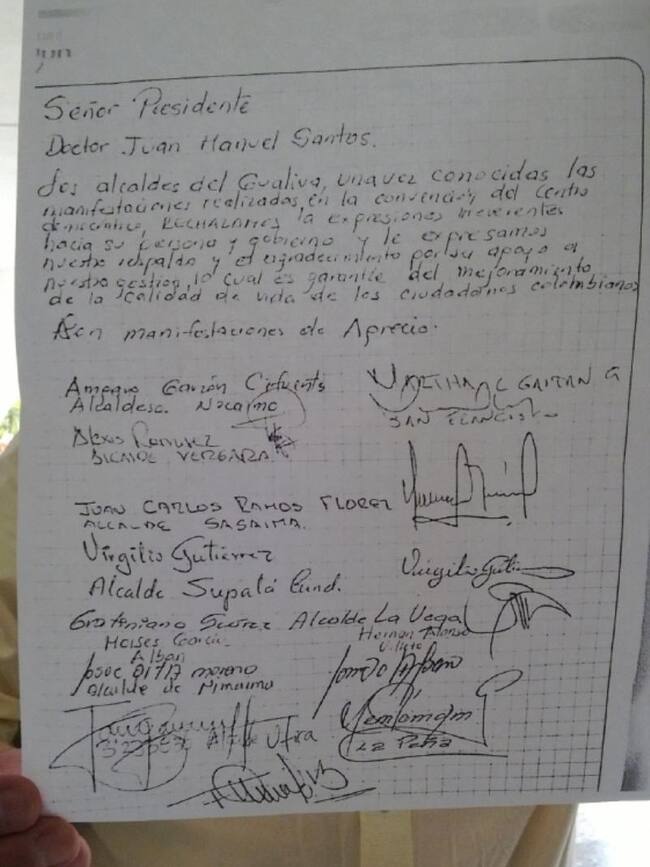 Señor Presidente
Doctor Juan Manuel Santos.
Los alcaldes del Gualiva, una vez conocidas las
manifestaciones realizadas en la convención del centro
democratico, RECHAZAMOS la expresiones irreverentes
hacia su persona y gobierno y le expresamos
nuestro respaldo y el agradecimiento por su apoyo a
nuestra gestion, lo cual es garante del mejoramiento
de la calidad de vida de los ciudadanos colombianos
Con manifestaciones de Aprecio.
Amparo Garzón Cifuentes
Alcaldesa Nocaima
GAITAN G
SAN FRANCISCO
Alexis Ramirez
ALCALDE VERGARA
JUAN CARLOS RAMOS FLOREZ
ALCALDE SASAIMA.
Virgilio Gutiérrez
Alcalde Supatá Cund.
Virgilio Gutie
Suarez Alcalde La Vega
Moises Garcia
Alban
Hernan Alonso
Villeta
Moreno
Alcalde de Nimaima
Alcalde Utica
La Peña